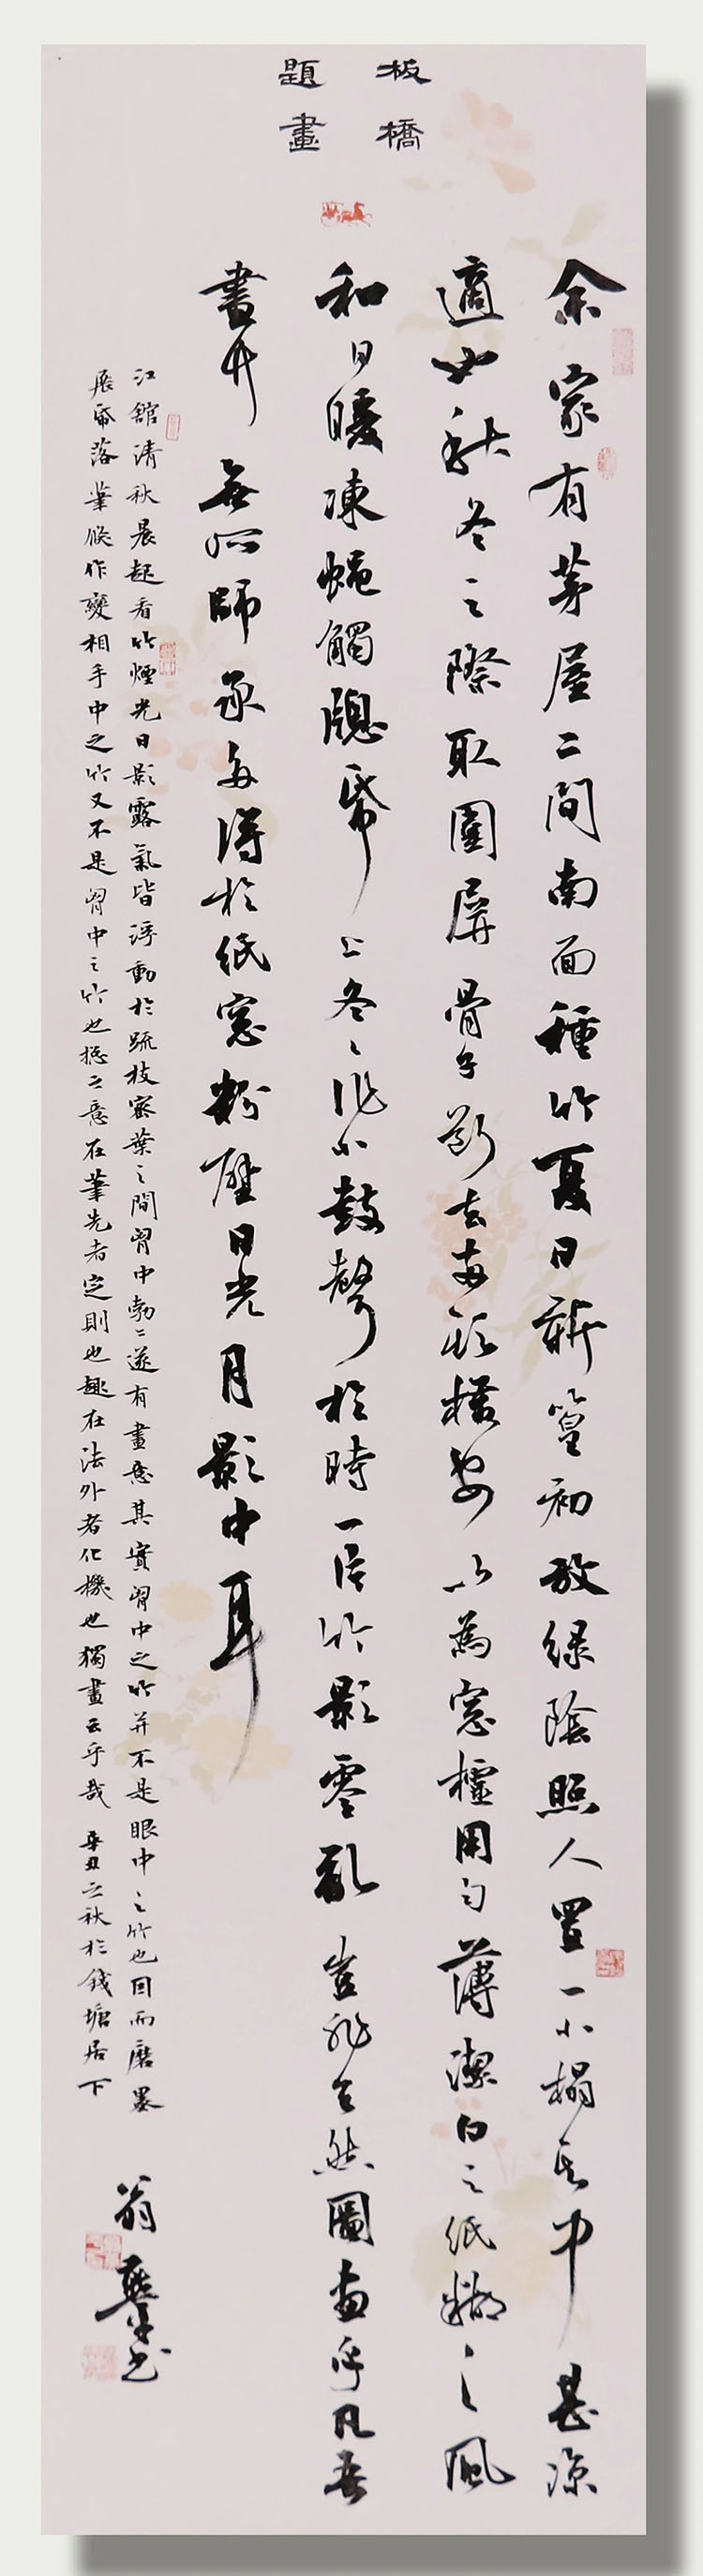 板橋
題畫
余家有茅屋二間南面種竹夏日新篁初放綠陰照人置一小榻其中甚涼
適也秋冬之際取圍屏骨子斷去兩頭橫安以為窓櫺用勻薄潔白之紙糊之風
和日暖凍蠅觸牕紙上冬冬作小鼓聲於時一片竹影零亂豈非天然圖畫乎凡吾
畫竹無所師承多得於紙窓粉壁日光月影中耳
江館清秋晨起看竹煙光日影露氣皆浮動於疏枝密葉之間胷中勃々遂有畫意其實胷中之竹并不是眼中之竹也因而磨墨
展紙落筆倐作變相手中之竹又不是胷中之竹也總之意在筆先者定則也趣在法外者化機也獨畫云乎哉 辛丑之秋於錢塘居下
翁 書